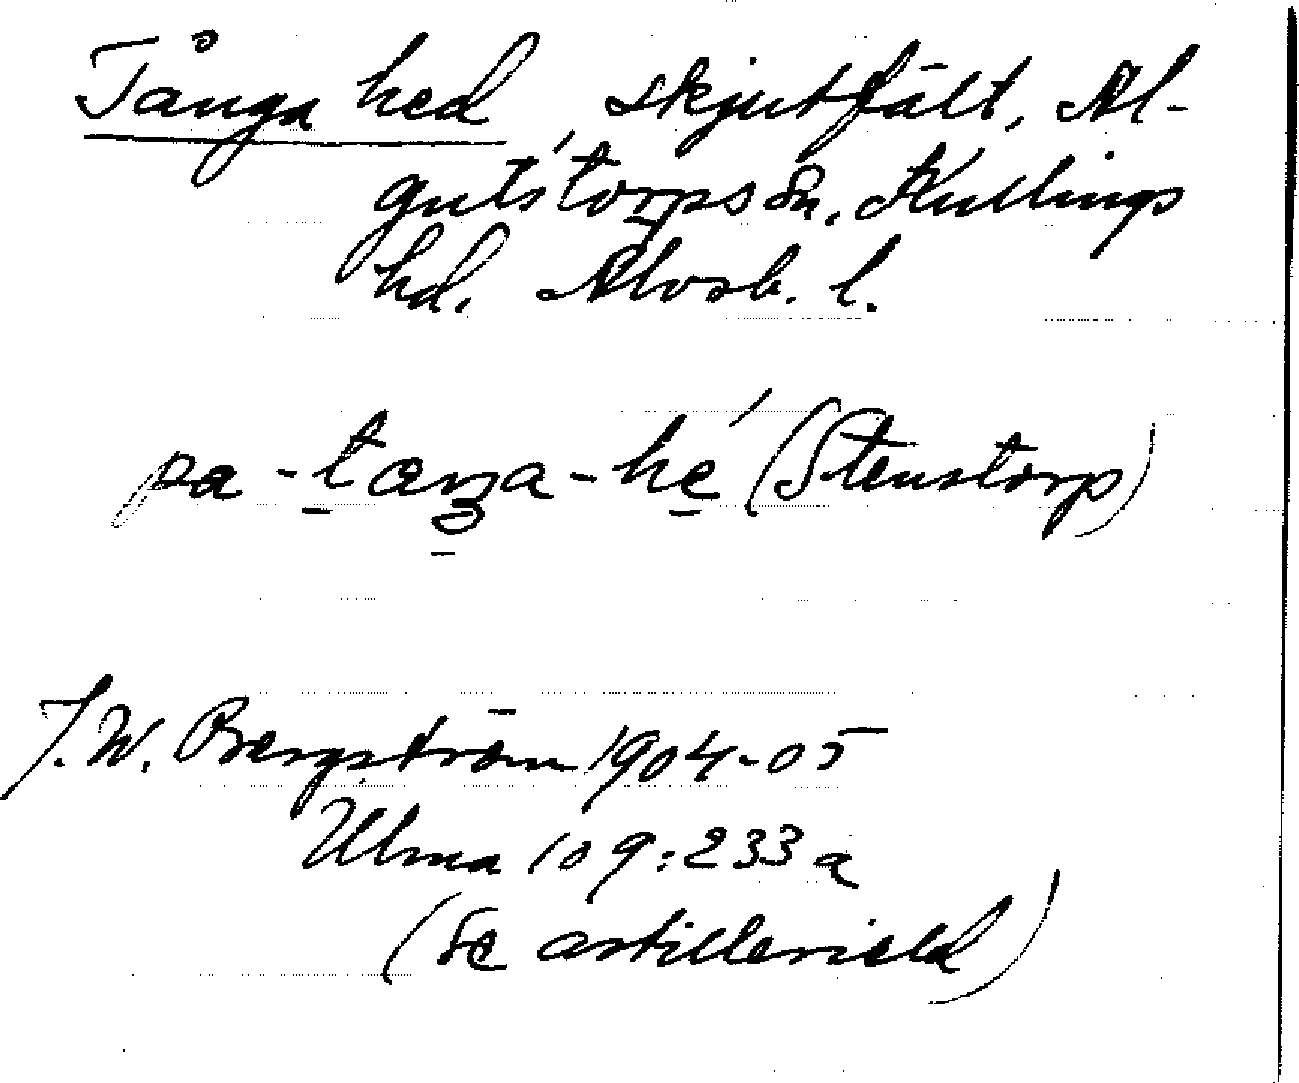 Tånga hed, skjutfält, Al-
gutstorps sn, Kullings
hd. Älvsb. l.
pa-taŋa-he´ (Stenstorp)
J.W. Bergström 1904-05
Ulma 109:233 a
(Se artillerield)